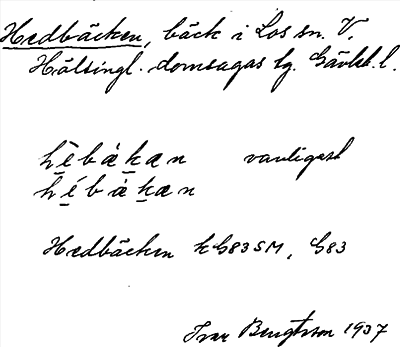 Hedbäcken, bäck i Los sn. V.
Hälsingl. domsagas tg. Gävleb. l.
hèbákæn vanligast
hébàkæn
Hedbäcken k G83SM, G83
Ivar Bengtsson 1937